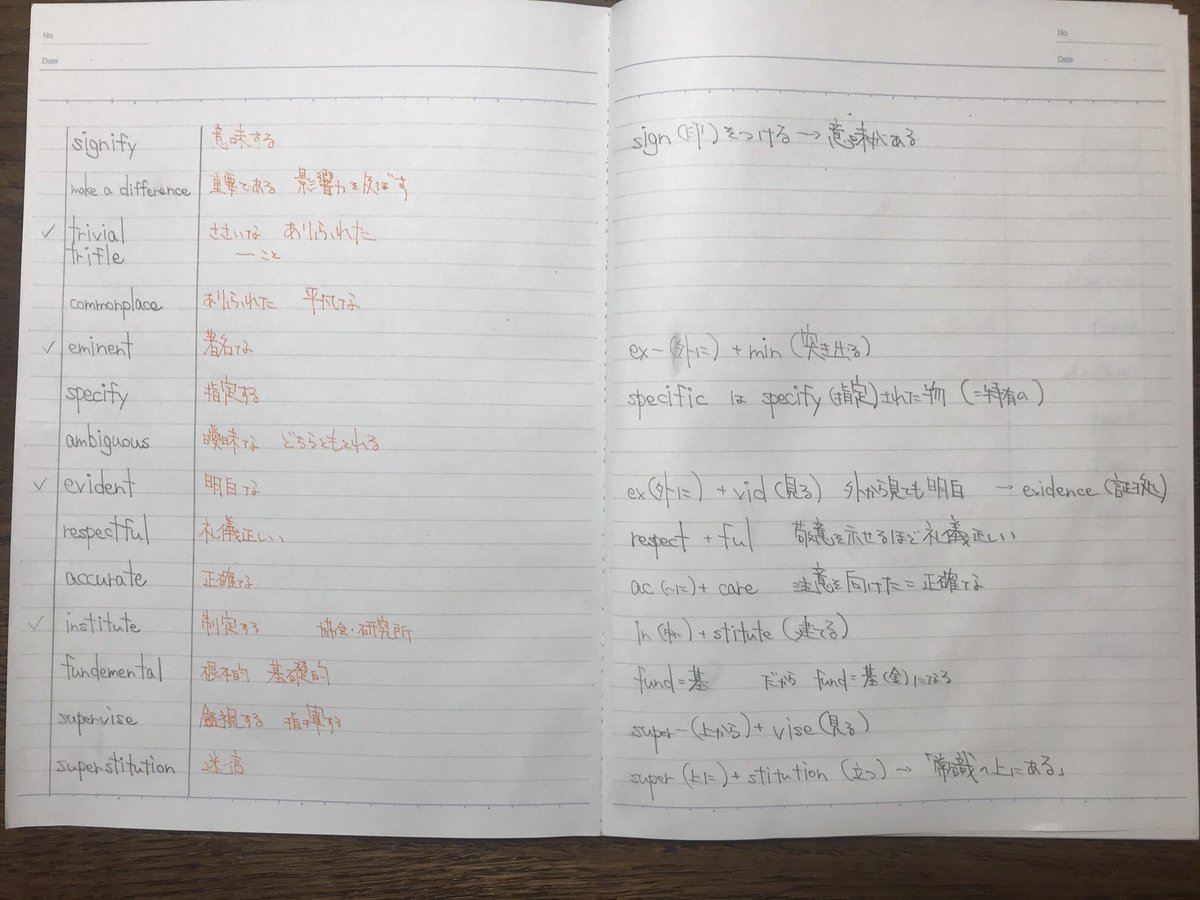 No.
Date
signify 意味する
make a difference 重要である 影響力を及ぼす
✓ trivial ささいな ありふれた
trifle 〃 ーこと
commonplace ありふれた 平凡な
✓ eminent 著名な
specify 指定する
ambiguous 曖昧な どちらともとれる
✓ evident 明白な
respectful 礼儀正しい
accurate 正確な
✓ institute 制定する 協会・研究所
fundemental 根本的 基礎的
supervise 監視する 指揮する
superstitution 迷信
No.
Date
sign(印)をつける→意味がある
ex-(外に)+min(突き出る)
specific は specify(指定)された物 (=特有の)
ex(外に)+vid(見る) 外から見ても明白 → evidence(証拠)
respect + ful 敬意を示せるほど礼儀正しい
ac(〜に)+care 注意を向けた=正確な
in(中に)+stitute(建てる)
fund=基 だから fund=基(金)になる
super-(上から)+vise(見る)
super(上に)+stitution(立つ)→「常識の上にある」